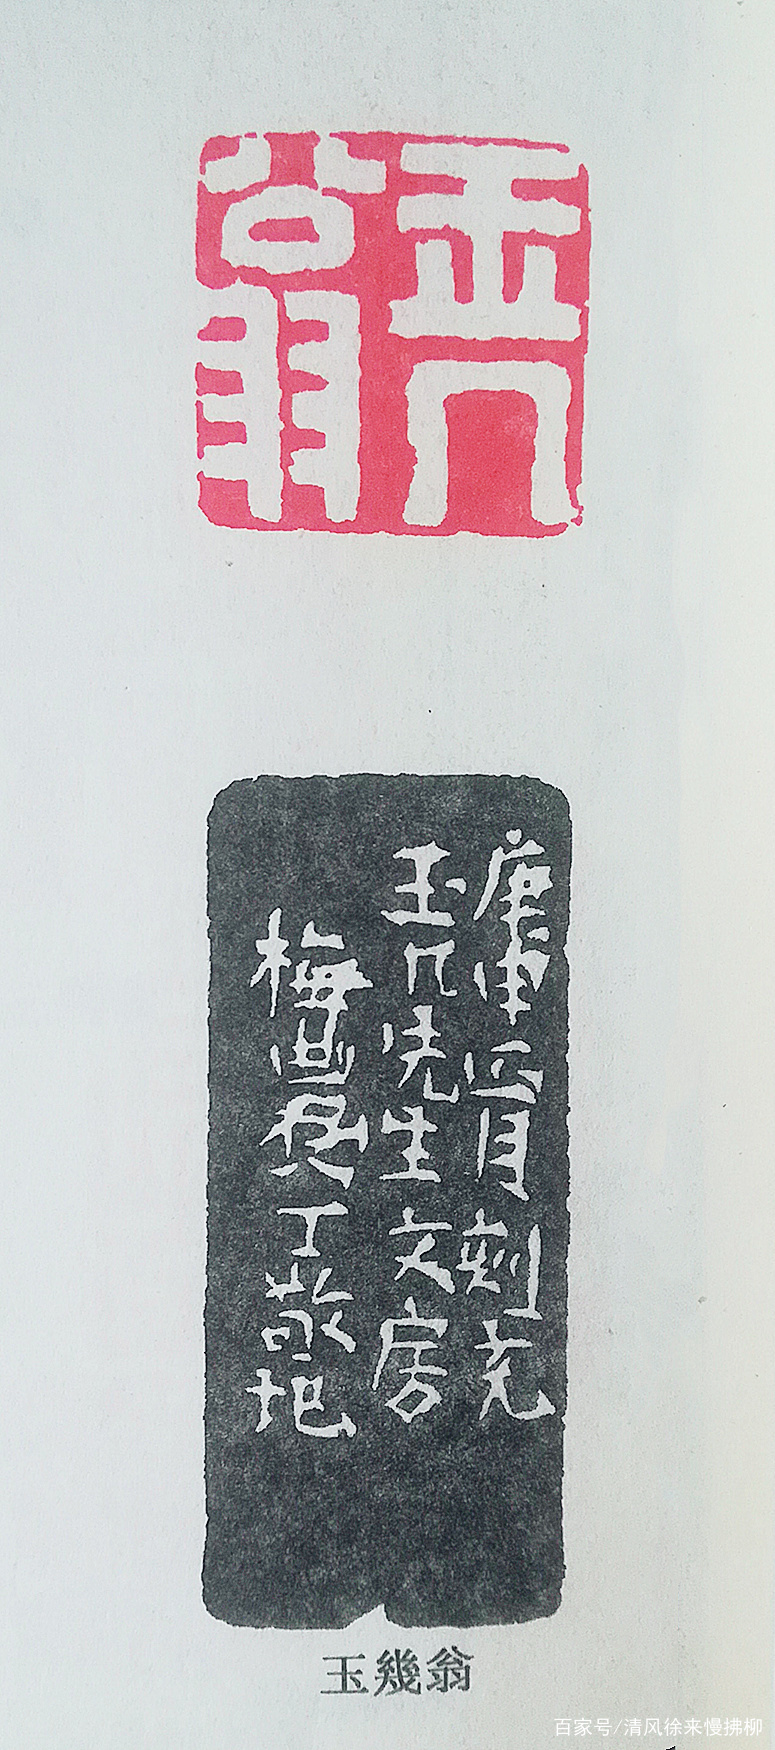 玉几翁
庚申正月刻充
玉几先生文房
梅農丁敬記
玉幾翁
百家号/清风徐来慢拂柳